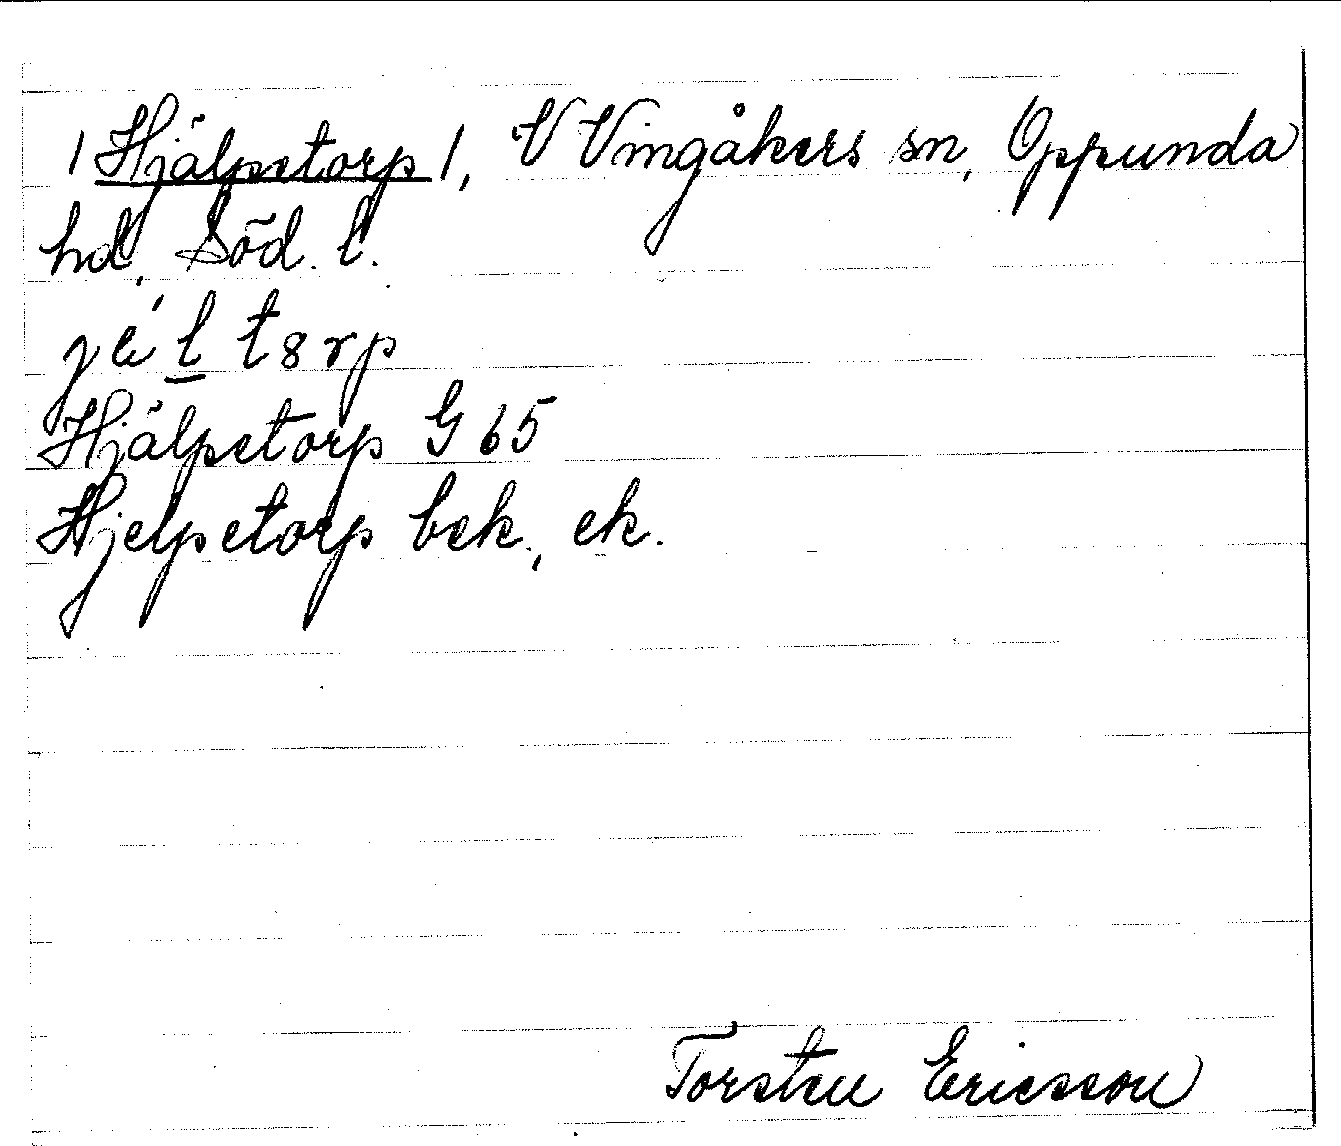 /Hjälpetorp/, V Vingåkers sn, Oppunda
hd, Söd. l.
jé l t8rp
Hjälpetorp G 65
Hjelpetorp bek., ek.
Torsten Ericsson